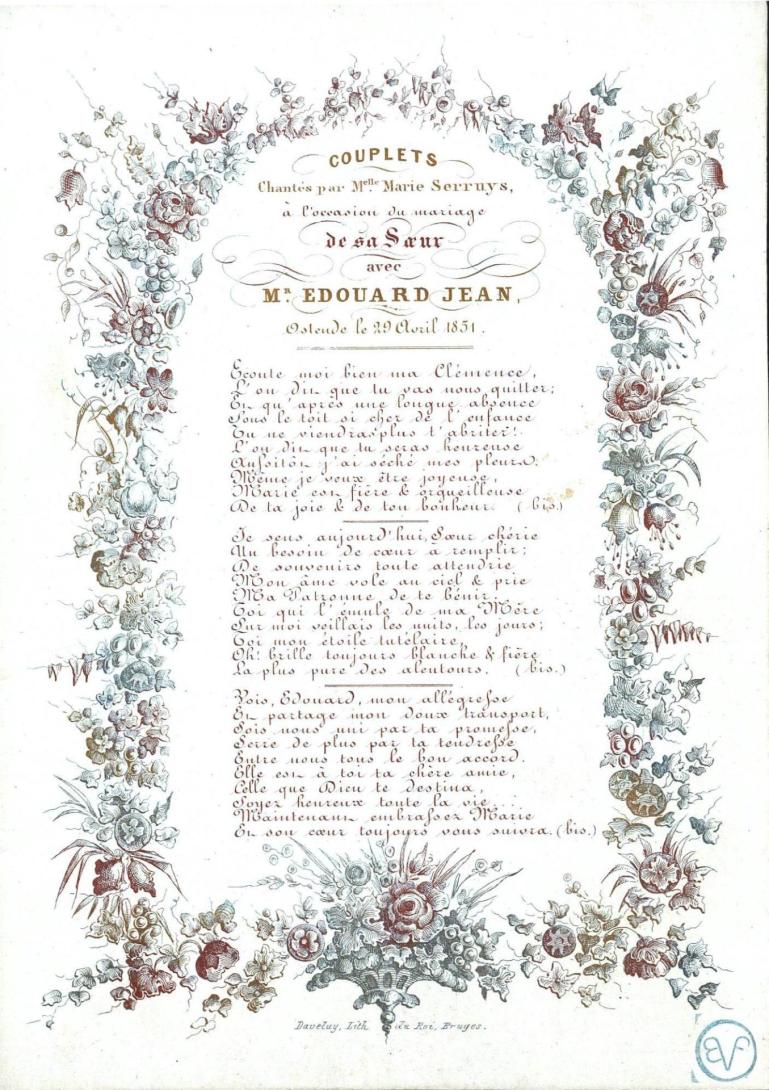 COUPLETS
Chantés par Melle Marie Serruys,
à l'occasion du mariage
de sa Sœur
avec
Mr. EDOUARD JEAN,
Ostende le 29 Avril 1851.
Ecoute moi bien ma Clémence,
L'on dit que tu vas nous quitter;
Et qu'après une longue absence
Sous le toit si cher de l'enfance
Tu ne viendras plus t'abriter!
L'on dit que tu seras heureuse
Aussitôt j'ai séché mes pleurs.
Même je veux être joyeuse,
Marie est fière & orgueilleuse
De ta joie & de ton bonheur. (bis.)
Je sens aujourd'hui, Sœur chérie
Un besoin de cœur à remplir;
De souvenirs toute attendrie
Mon âme vole au ciel & prie
Ma Patronne de te bénir.
Toi qui l'émule de ma Mère
Sur moi veillais les nuits, les jours;
Toi mon étoile tutélaire,
Oh! brille toujours blanche & fière
La plus pure des alentours. (bis.)
Vois, Edouard, mon allégresse
Et partage mon doux transport,
Sois nous uni par ta promesse,
Serre de plus par ta tendresse
Entre nous tous le bon accord.
Elle est à toi ta chère amie,
Celle que Dieu te destina,
Soyez heureux toute la vie...
Maintenant embrassez Marie
Et son cœur toujours vous suivra. (bis.)
Daveluy, Lith. du Roi, Bruges.